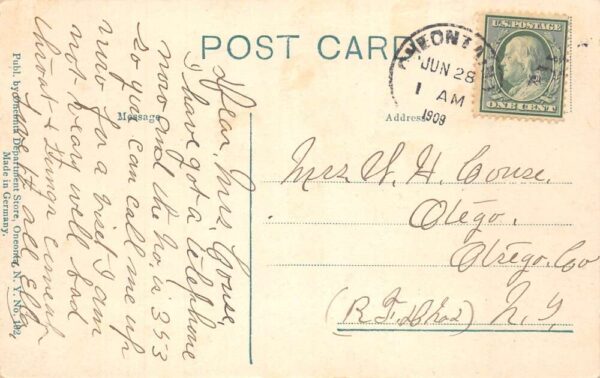 POST CARD
ONEONTA
JUN 28
1 AM
1909
U.S. POSTAGE
ONE CENT
Message
Address
Dear, Mrs, Couse,
I have got a telephone
now and the No, is 353
so you can call me up
now for a visit I am
not very well bad
throat & lungs
love to all Ella
Mrs W. H. Couse.
Otego.
Otsego. Co
N. Y.
Publ. by Oneonta Department Store, Oneonta, N. Y. No. 102.
Made in Germany.